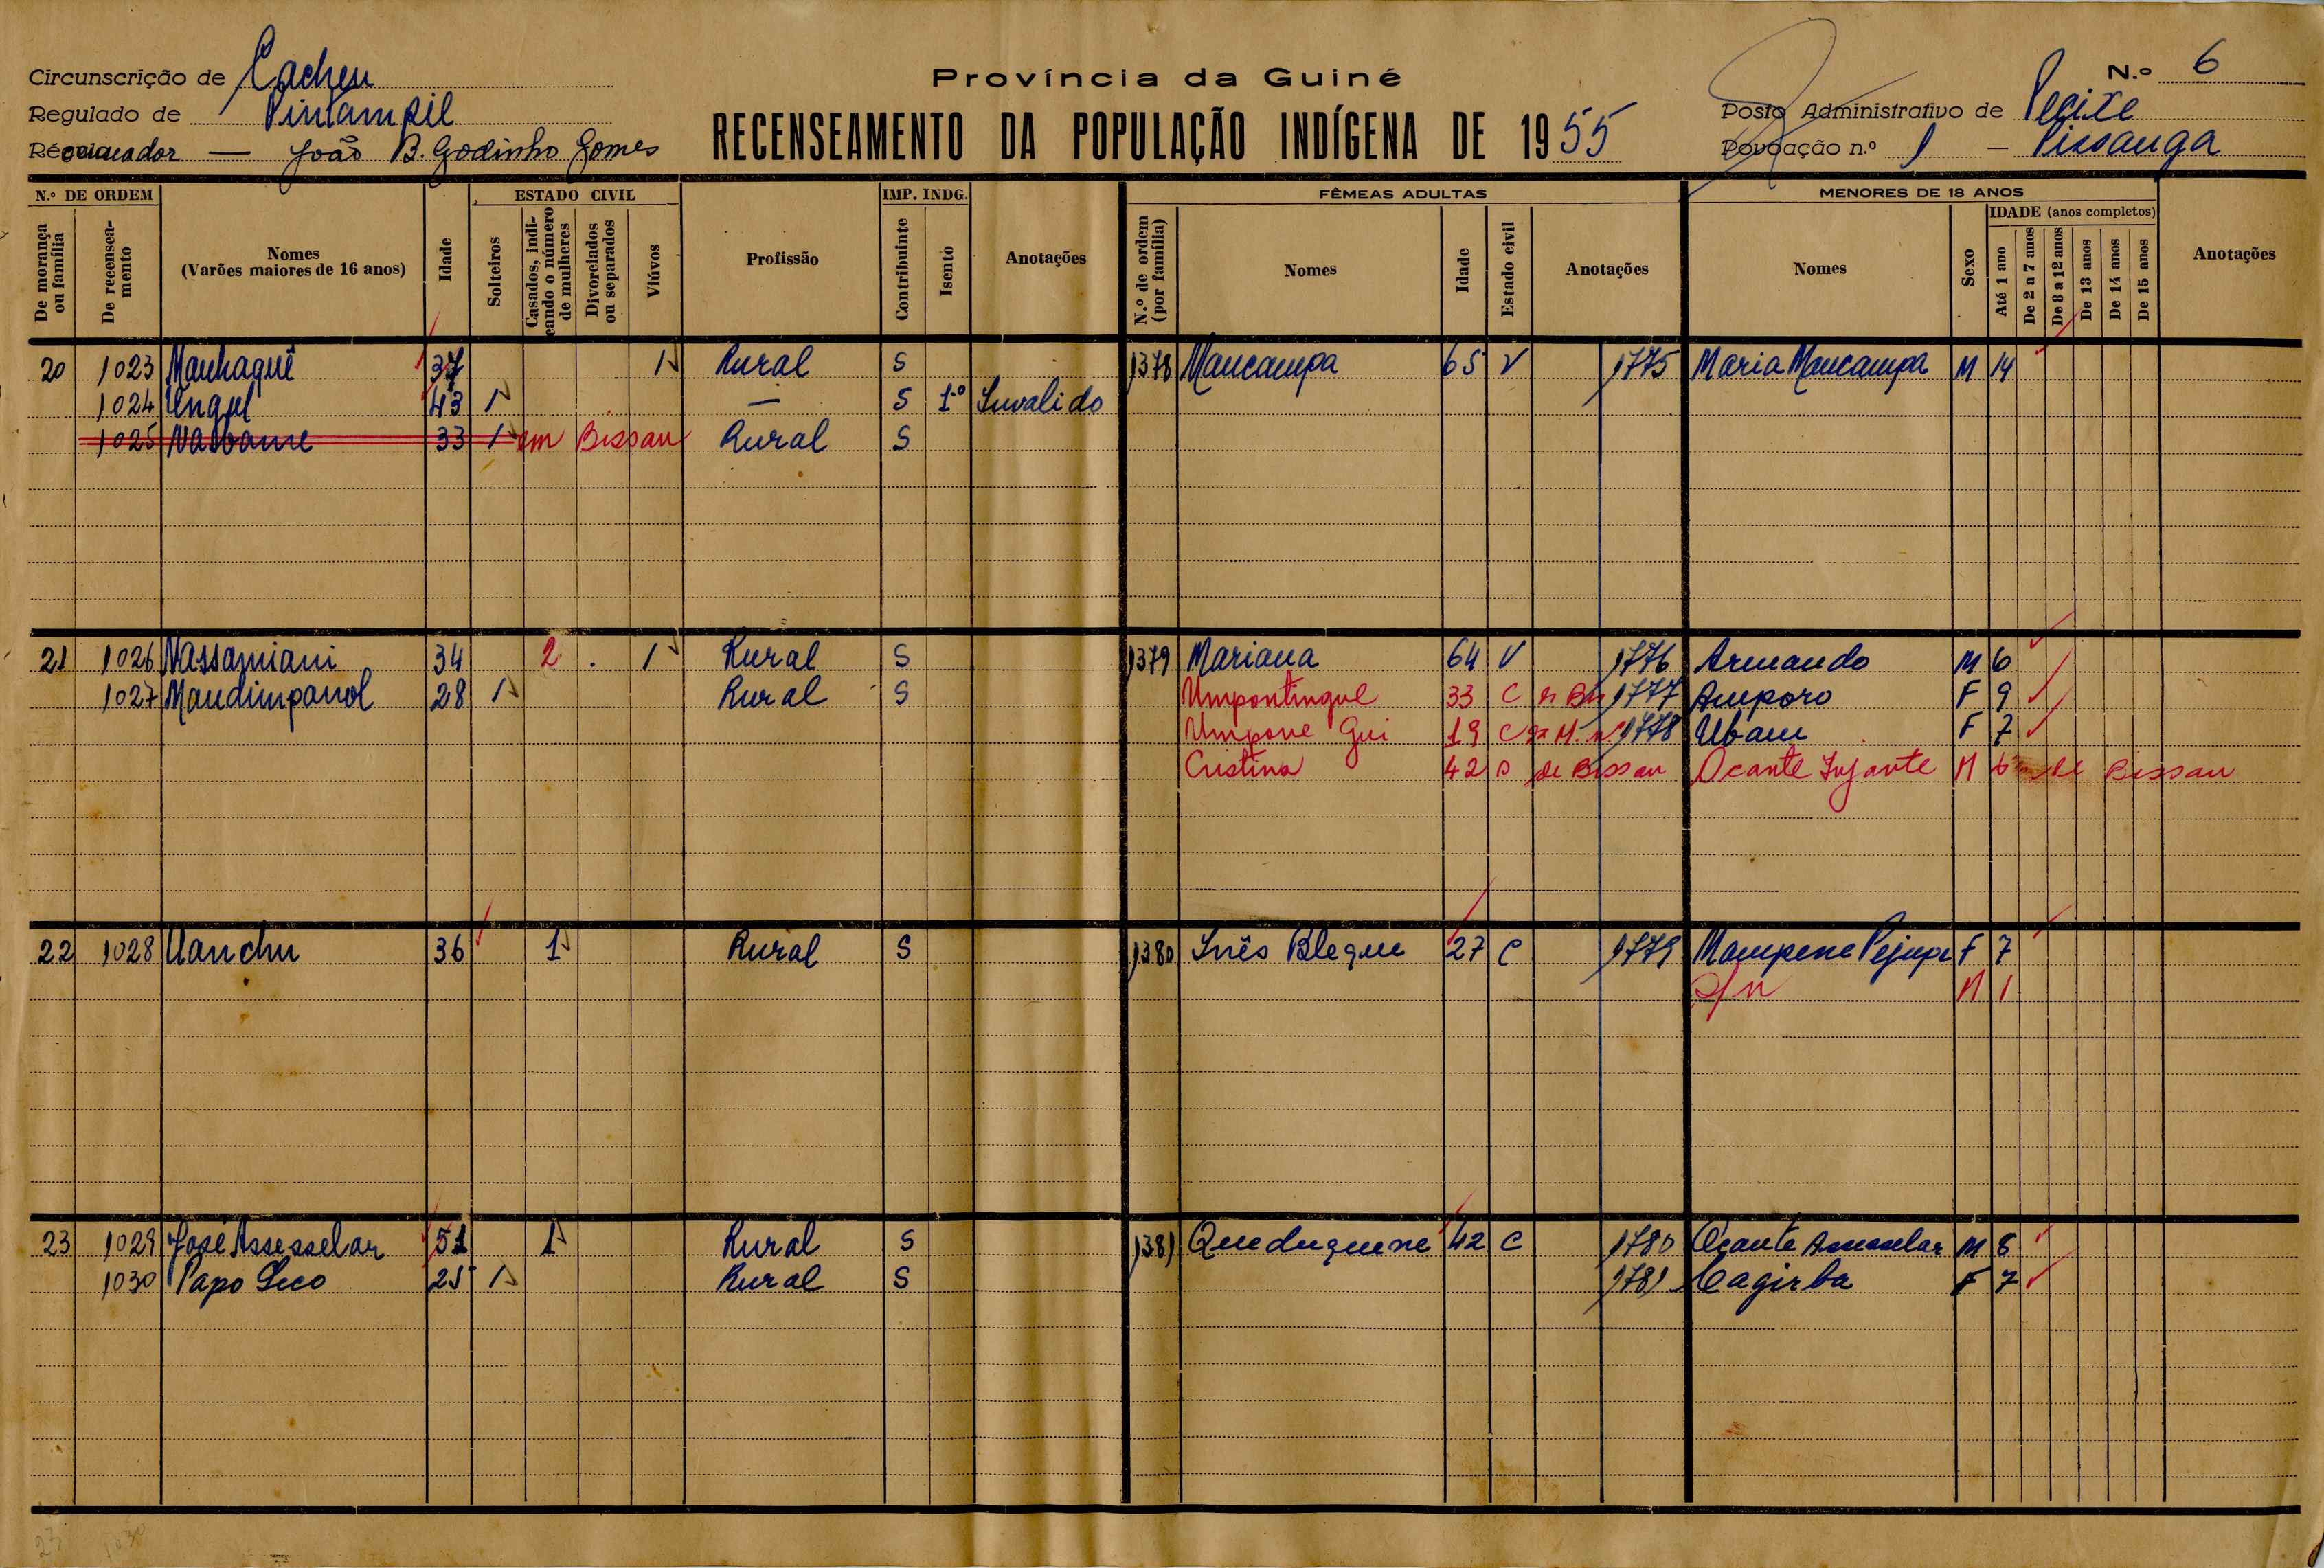 Província da Guiné
N.º 6
Circunscrição de Cacheu
Regulado de Pintampil
Recenseador — João B. Godinho Gomes
RECENSEAMENTO DA POPULAÇÃO INDÍGENA DE 1955
Posto Administrativo de Pecixe
Povoação n.º 1 – Pissanga
N.º DE ORDEM
De morança ou família
De recenseamento
Nomes (Varões maiores de 16 anos)
Idade
ESTADO CIVIL
Solteiros
Casados, indicando o número de mulheres
Divorciados ou separados
Viúvos
Profissão
IMP. INDG.
Contribuinte
Isento
Anotações
FÊMEAS ADULTAS
N.º de ordem (por família)
Nomes
Idade
Estado civil
Anotações
MENORES DE 18 ANOS
Nomes
Sexo
IDADE (anos completos)
Até 1 ano
De 2 a 7 anos
De 8 a 12 anos
De 13 anos
De 14 anos
De 15 anos
Anotações
20 1023 Manhaguê 37 1 Rural S 1378 Maucampa 65 V 1775 Maria Maucampa M 14
1024 Ungul 43 1 — S 1º Invalido
1025 Nabbame 33 1 em Bissau Rural S
21 1026 Nassamiani 34 2 1 Rural S 1379 Mariana 64 V 1776 Armando M 6
1027 Maudimpanol 28 1 Rural S Umpontingue 33 C 1777 Amporo F 9
Umpone Gui 19 C 1778 Ubam F 7
Cristina 42 S de Bissau Ocante Infante M de Bissau
22 1028 Uanchu 36 1 Rural S 1380 Inês Bleque 27 C 1779 Mampene Pejupe F 7
S/n M 1
23 1029 José Assesselar 51 1 Rural S 1381 Queduguene 42 C 1780 Ocante Assesselar M 8
1030 Papo Seco 25 1 Rural S 1781 Cagirba F 7
23 1030